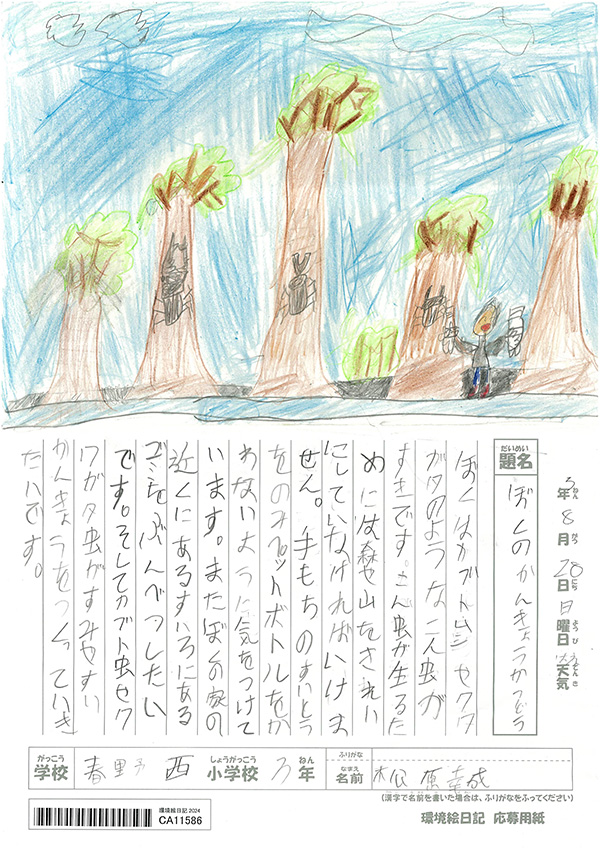 5年8月20日日曜日 天気
だいめい
題名
ぼくのかんきょうかつどう
ぼくはカブトムシ、セクワ
ガタのようなこん虫が
すきです。こん虫が生るた
めには森や山をきれい
にしていなければいけま
せん。手もちのすいとう
をのみペットボトルをか
わないように気をつけて
います。またぼくの家の
近くにあるすいろにある
ゴミをぶんべつしたい
です。そしてカブト虫セク
ワガタ虫がすみやすい
かんきょうをつくっていき
たいです。
がっこう しょうがっこう ねん
学校 春野西 小学校 3年
ふりがな
なまえ
名前 原幸成
(漢字で名前を書いた場合は、ふりがなをふってください)
環境絵日記 2024
CA11586
環境絵日記 応募用紙